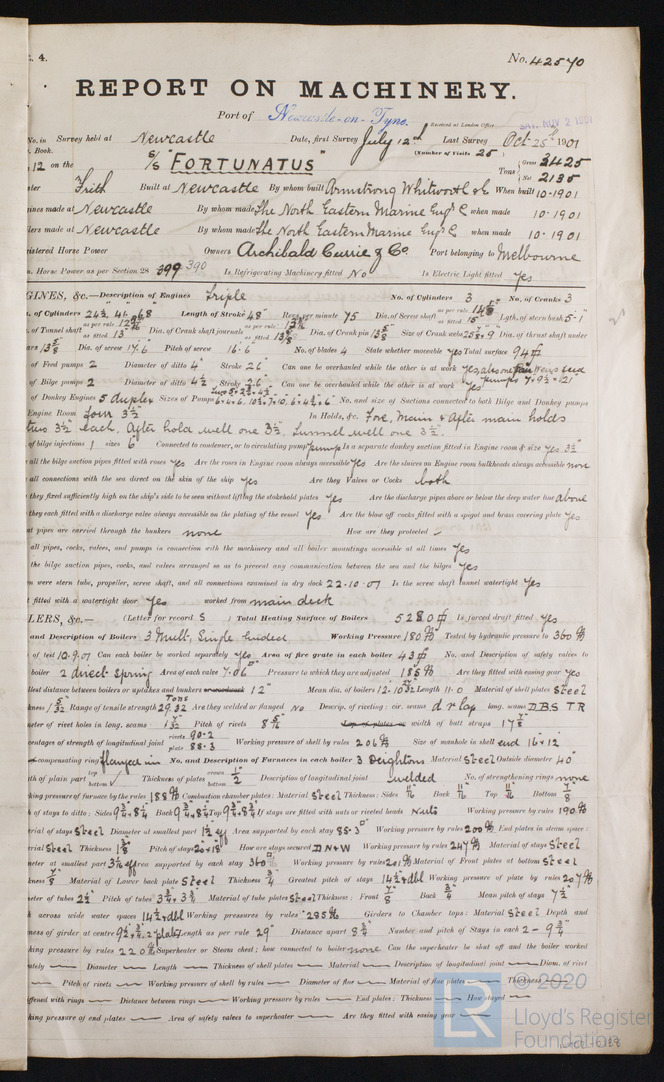 . 4.
No. 42570
REPORT ON MACHINERY.
Port of Newcastle-on-Tyne.
Received at London Office SAT. NOV 2 1901
No. in Survey held at Newcastle Date, first Survey July 12th Last Survey Oct 25th 1901
Book. (Number of Visits 25)
12 on the S/S FORTUNATUS Tons { Gross 3425
Net 2135
ster Frith Built at Newcastle By whom built Armstrong Whitworth & Co When built 10-1901
ines made at Newcastle By whom made The North Eastern Marine Engg Co when made 10-1901
lers made at Newcastle By whom made The North Eastern Marine Engg Co when made 10-1901
istered Horse Power Owners Archibald Currie & Co. Port belonging to Melbourne
n. Horse Power as per Section 28 399 390 Is Refrigerating Machinery fitted No Is Electric Light fitted yes
GINES, &c.—Description of Engines Triple No. of Cylinders 3 No. of Cranks 3
. of Cylinders Length of Stroke 48" Revs. per minute 75 Dia. of Screw shaft as per rule as fitted Lgth. of stern bush 5-1"
. of Tunnel shaft as per rule as fitted 13" Dia. of Crank shaft journals as per rule as fitted 13 5/8 Dia. of Crank pin 13 5/8 Size of Crank webs Dia. of thrust shaft under
ars 13 5/8 Dia. of screw 17.6 Pitch of screw 16.6 No. of blades 4 State whether moveable yes Total surface 94
of Feed pumps 2 Diameter of ditto 4" Stroke 26" Can one be overhauled while the other is at work yes, also
of Bilge pumps 2 Diameter of ditto 4 1/2 Stroke 26" Can one be overhauled while the other is at work yes
of Donkey Engines 5 duplex Sizes of Pumps No. and size of Suctions connected to both Bilge and Donkey pumps
Engine Room four 3 1/2" In Holds, &c. Fore, Main & After main holds
two 3 1/2" each. After hold well one 3 1/2, Tunnel well one 3 1/2".
of bilge injections 1 sizes 6" Connected to condenser, or to circulating pump pump Is a separate donkey suction fitted in Engine room & size yes 3 1/2"
all the bilge suction pipes fitted with roses yes Are the roses in Engine room always accessible yes Are the sluices on Engine room bulkheads always accessible none
all connections with the sea direct on the skin of the ship yes Are they Valves or Cocks both
they fixed sufficiently high on the ship's side to be seen without lifting the stokehold plates yes Are the discharge pipes above or below the deep water line above
they each fitted with a discharge valve always accessible on the plating of the vessel yes Are the blow off cocks fitted with a spigot and brass covering plate yes
at pipes are carried through the bunkers none How are they protected –
all pipes, cocks, valves, and pumps in connection with the machinery and all boiler mountings accessible at all times yes
the bilge suction pipes, cocks, and valves arranged so as to prevent any communication between the sea and the bilges yes
n were stern tube, propeller, screw shaft, and all connections examined in dry dock 22-10-01 Is the screw shaft tunnel watertight yes
t fitted with a watertight door yes worked from main deck
LERS, &c.— (Letter for record S ) Total Heating Surface of Boilers 5280 Is forced draft fitted yes
and Description of Boilers 3 Mult, Single Ended Working Pressure 180 Tested by hydraulic pressure to 360
of test 10.9.01 Can each boiler be worked separately yes Area of fire grate in each boiler 43 No. and Description of safety valves to
boiler 2 direct spring Area of each valve 7.06 Pressure to which they are adjusted 185 Are they fitted with easing gear yes
llest distance between boilers or uptakes and bunkers 12" Mean dia. of boilers Length 11.0 Material of shell plates Steel
kness 1 5/32 Range of tensile strength 29.32 Tons Are they welded or flanged No Descrip. of riveting: cir. seams d r lap long. seams D.B.S TR
meter of rivet holes in long. seams 1 7/32 Pitch of rivets Lap of plates or width of butt straps 17 7/8
centages of strength of longitudinal joint rivets 90.2
plate 88.3 Working pressure of shell by rules 206 Size of manhole in shell end 16 x 12
compensating ring flanged in No. and Description of Furnaces in each boiler 3 Deighton Material Steel Outside diameter 40"
th of plain part top bottom Thickness of plates crown bottom 1/2 Description of longitudinal joint welded No. of strengthening rings none
king pressure of furnace by the rules 188 Combustion chamber plates: Material Steel Thickness: Sides 11/16 Back 11/16 Top 11/16 Bottom 7/8
h of stays to ditto: Sides Back Top If stays are fitted with nuts or riveted heads Nuts Working pressure by rules 190
rial of stays Steel Diameter at smallest part Area supported by each stay 85.3 Working pressure by rules 200 End plates in steam space:
rial Steel Thickness Pitch of stays 20 x 18 How are stays secured D.N+W Working pressure by rules 247 Material of stays Steel
eter at smallest part Area supported by each stay 360 Working pressure by rules 201 Material of Front plates at bottom Steel
kness 7/8 Material of Lower back plate Steel Thickness 3/4 Greatest pitch of stays 14 1/2 + dbl Working pressure of plate by rules 207
eter of tubes 2 1/2 Pitch of tubes 3 3/4 x 3 3/4 Material of tube plates Steel Thickness: Front 7/8 Back 3/4 Mean pitch of stays 7 1/2
h across wide water spaces 14 1/2 + dbl Working pressures by rules 285 Girders to Chamber tops: Material Steel Depth and
ness of girder at centre Length as per rule 29" Distance apart 8 3/4 Number and pitch of Stays in each 2 - 9 3/4
king pressure by rules 220 Superheater or Steam chest; how connected to boiler none Can the superheater be shut off and the boiler worked
ately — Diameter — Length — Thickness of shell plates — Material — Description of longitudinal joint — Diam. of rivet
— Pitch of rivets — Working pressure of shell by rules — Diameter of flue — Material of flue plates — Thickness —
iffened with rings — Distance between rings — Working pressure by rules — End plates: Thickness — How stayed —
king pressure of end plates — Area of safety valves to superheater — Are they fitted with easing gear —
© 2020
LR
Lloyd's Register
Foundation